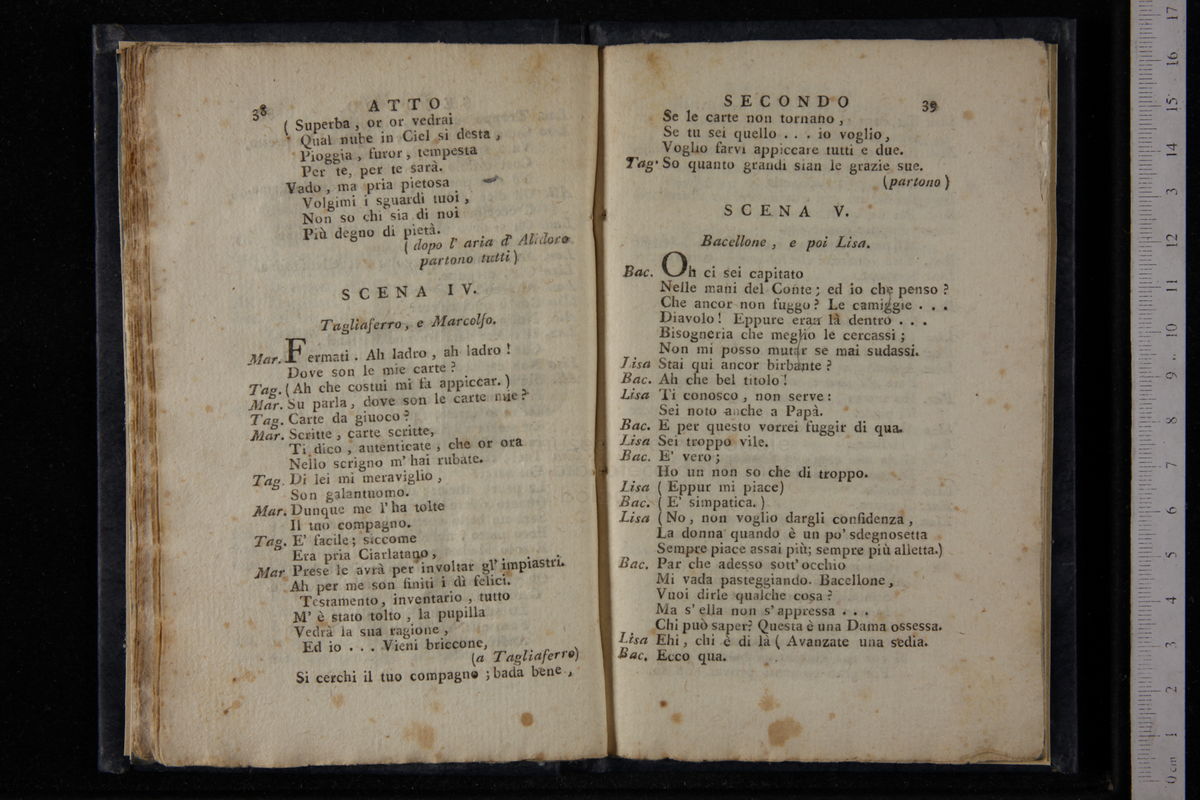 38
ATTO
( Superba , or or vedrai
Qual nube in Ciel si desta ,
Pioggia , furor , tempesta
Per te, per te sarà.
Vado , ma pria pietosa
Volgimi i sguardi tuoi ,
Non so chi sia di noi
Più degno di pietà.
( dopo l' aria d' Alidoro
partono tutti )
SCENA IV.
Tagliaferro, e Marcolfo.
Mar. Fermati . Ah ladro , ah ladro !
Dove son le mie carte ?
Tag. ( Ah che costui mi fa appiccar. )
Mar. Su parla, dove son le carte mie ?
Tag. Carte da giuoco ?
Mar. Scritte , carte scritte,
Ti dico , autenticate , che or ora
Nello scrigno m' hai rubate.
Tag. Di lei mi meraviglio ,
Son galantuomo.
Mar. Dunque me l' ha tolte
Il tuo compagno.
Tag. E' facile ; siccome
Era pria Ciarlatano ,
Mar Prese le avrà per involtar gl' impiastri.
Ah per me son finiti i dì felici.
Testamento, inventario , tutto
M' è stato tolto , la pupilla
Vedrà la sua ragione ,
Ed io . . . Vieni briccone,
(a Tagliaferro)
Si cerchi il tuo compagno ; bada bene ,
SECONDO
39
Se le carte non tornano ,
Se tu sei quello . . . io voglio ,
Voglio farvi appiccare tutti e due.
Tag. So quanto grandi sian le grazie sue.
(partono)
SCENA V.
Bacellone , e poi Lisa.
Bac. Oh ci sei capitato
Nelle mani del Conte ; ed io che penso ?
Che ancor non fuggo ? Le camiggie . . .
Diavolo ! Eppure eran là dentro . . .
Bisogneria che meglio le cercassi ;
Non mi posso mutar se mai sudassi.
Lisa Stai qui ancor birbante ?
Bac. Ah che bel titolo !
Lisa Ti conosco , non serve :
Sei noto anche a Papà.
Bac. E per questo vorrei fuggir di qua.
Lisa Sei troppo vile.
Bac. E' vero ;
Ho un non so che di troppo.
Lisa ( Eppur mi piace)
Bac. ( E' simpatica. )
Lisa ( No , non voglio dargli confidenza ,
La donna quando è un po' sdegnosetta
Sempre piace assai più; sempre più alletta.)
Bac. Par che adesso sott' occhio
Mi vada pasteggiando. Bacellone ,
Vuoi dirle qualche cosa ?
Ma s' ella non s' appressa . . .
Chi può saper? Questa è una Dama ossessa.
Lisa Ehi, chi è di là ( Avanzate una sedia.
Bac. Ecco qua.
0 cm 1 2 3 4 5 6 7 8 9 10 11 12 13 14 15 16 17